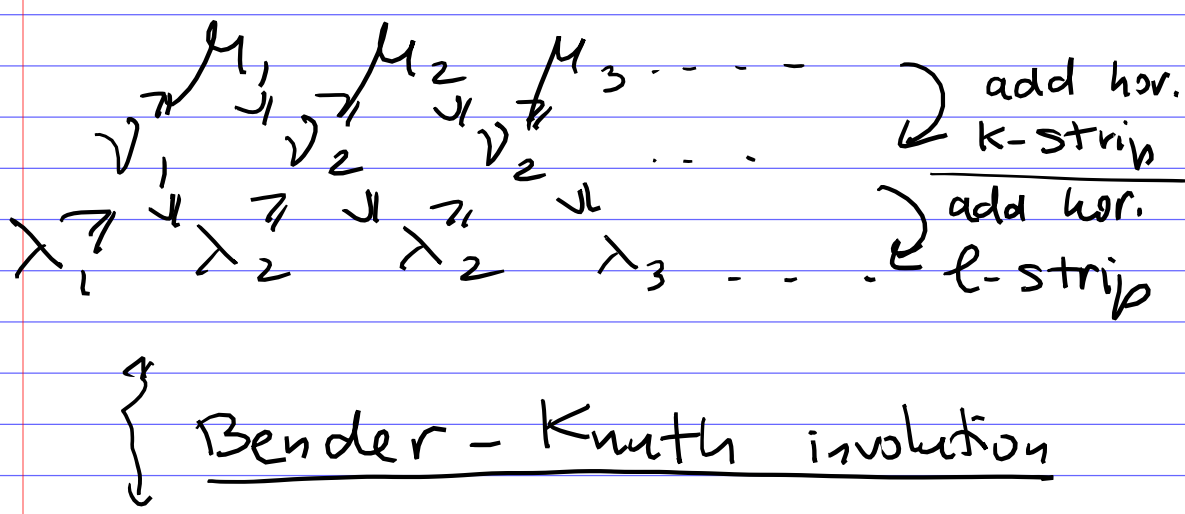 μ₁ ⩾ μ₂ ⩾ μ₃ . - - - add hor.
ν₁ ν₂ ν₂ . - . k-strip
λ₁ λ₂ λ₂ λ₃ - - . add hor.
l-strip
Bender - Knuth involution